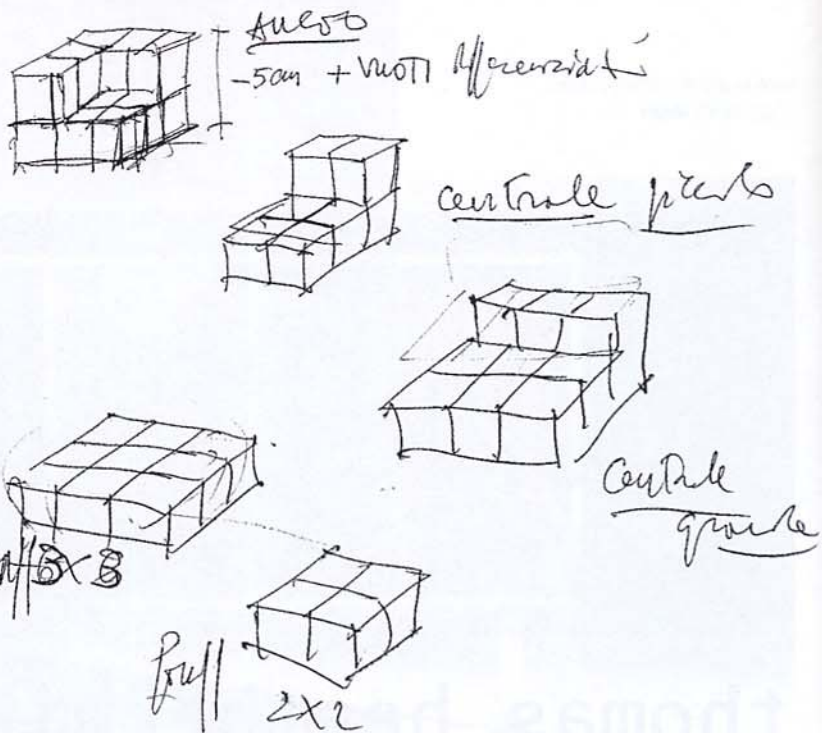 ANGOLO
-5cm + VUOTI differenziati
centrale piccolo
Centrale
grande
3x3
Pouff
2x2